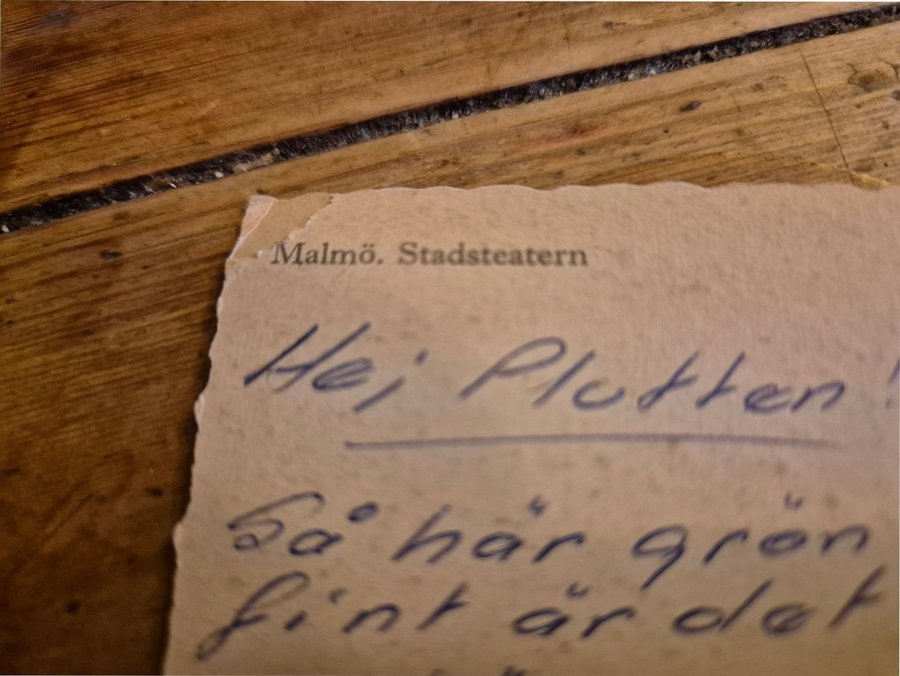 Malmö. Stadsteatern
Hej Plutten!
Så här grön
fint är det